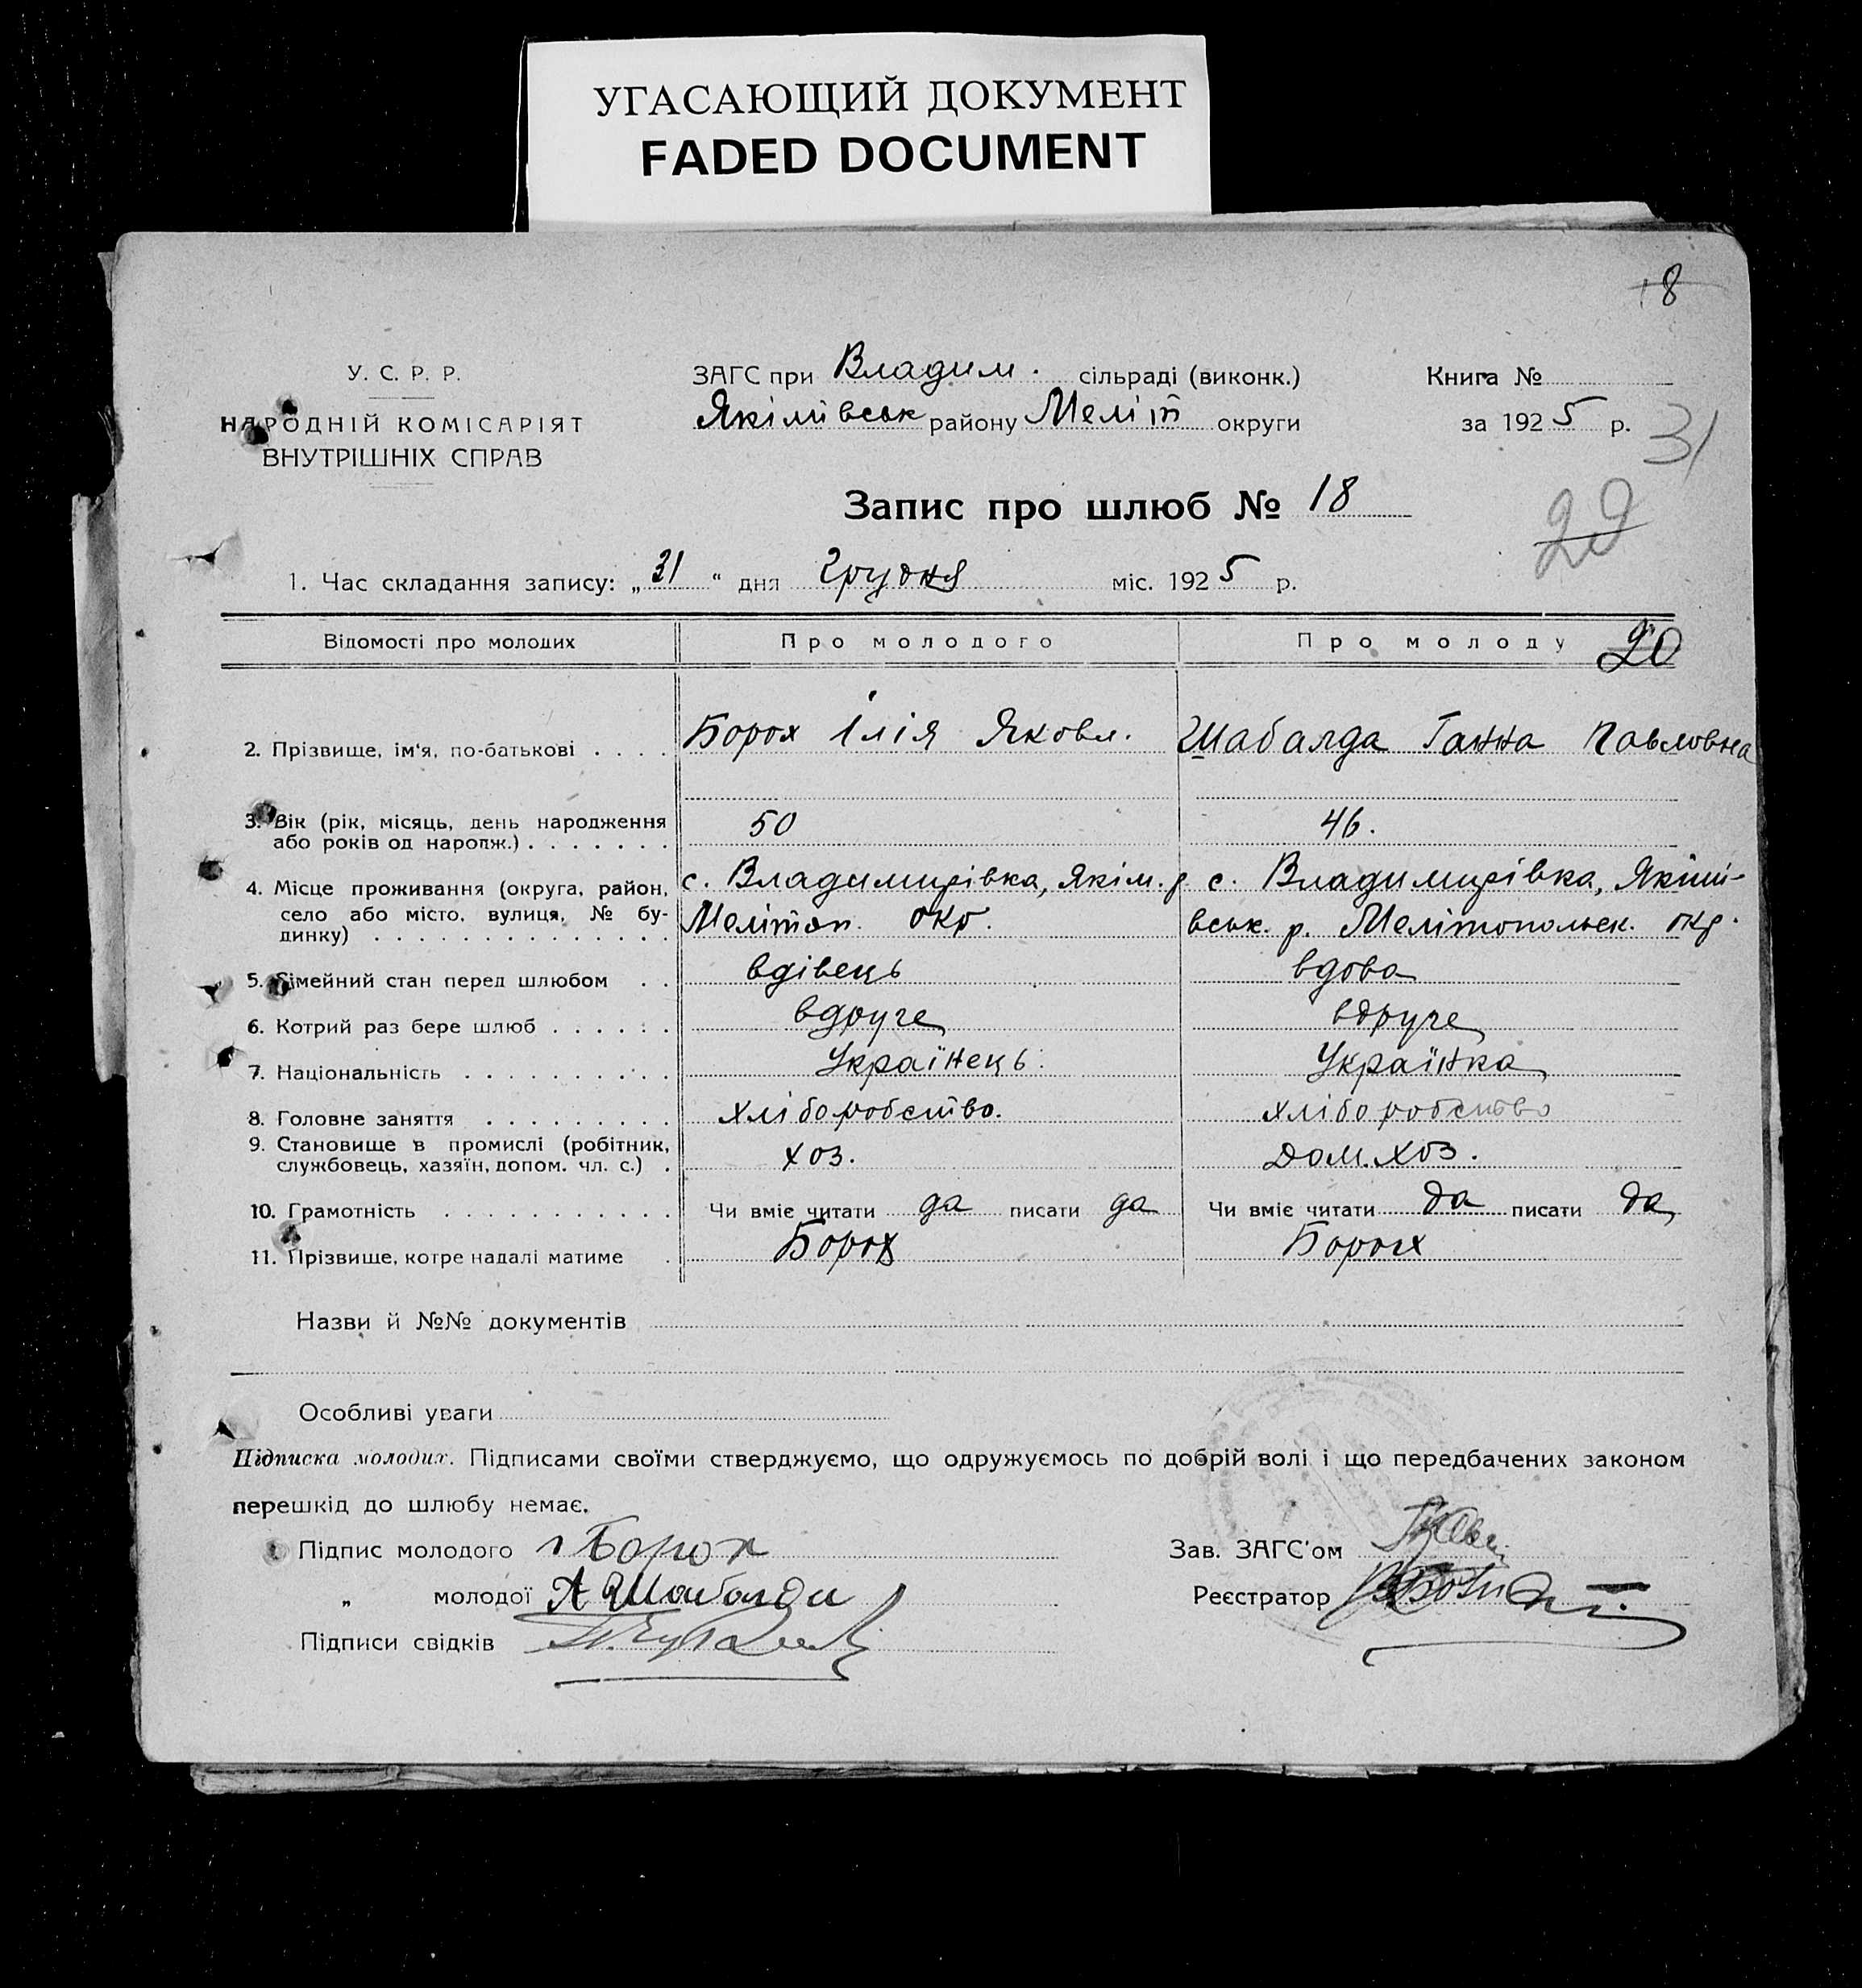 УГАСАЮЩИЙ ДОКУМЕНТ
FADED DOCUMENT
18
У. С. Р. Р.
НАРОДНІЙ КОМІСАРІЯТ
ВНУТРІШНІХ СПРАВ
ЗАГС при Владим. сільраді (виконк.)
Якімівськ району Меліт округи
Книга №
за 1925 р.
31
29
Запис про шлюб № 18
1. Час складання запису: „31" дня Грудня міс. 1925 р.
Відомості про молодих Про молодого Про молоду 20
2. Прізвище, ім'я, по-батькові . . . . Борох Ілія Яковл. Шабалда Ганна Павловна
3. Вік (рік, місяць, день народження
або років од наролж.) . . . . . . . 50 46.
4. Місце проживання (округа, район, с. Владимирівка, Якім. р с. Владимирівка, Якімі-
село або місто, вулиця, № бу- Мелітоп. окр. вськ. р. Мелітопольск. окр.
динку) . . . . . . . . . . . . . .
5. Сімейний стан перед шлюбом . . вдівець вдова
6. Котрий раз бере шлюб . . . . . . вдруге вдруге
7. Національність . . . . . . . . . . Українець. Українка
8. Головне заняття . . . . . . . . . хліборобство. хліборобство
9. Становище в промислі (робітник,
службовець, хазяїн, допом. чл. с.) . хоз. Дом. хоз.
10. Грамотність . . . . . . . . . . . Чи вміє читати да писати да Чи вміє читати да писати да
11. Прізвище, котре надалі матиме . Борох Борох
Назви й №№ документів
Особливі уваги
Підписка молодих. Підписами своїми стверджуємо, що одружуємось по добрій волі і що передбачених законом
перешкід до шлюбу немає.
Підпис молодого Борох
„ молодої А Шабалда
Підписи свідків
Зав. ЗАГС'ом
Реєстратор